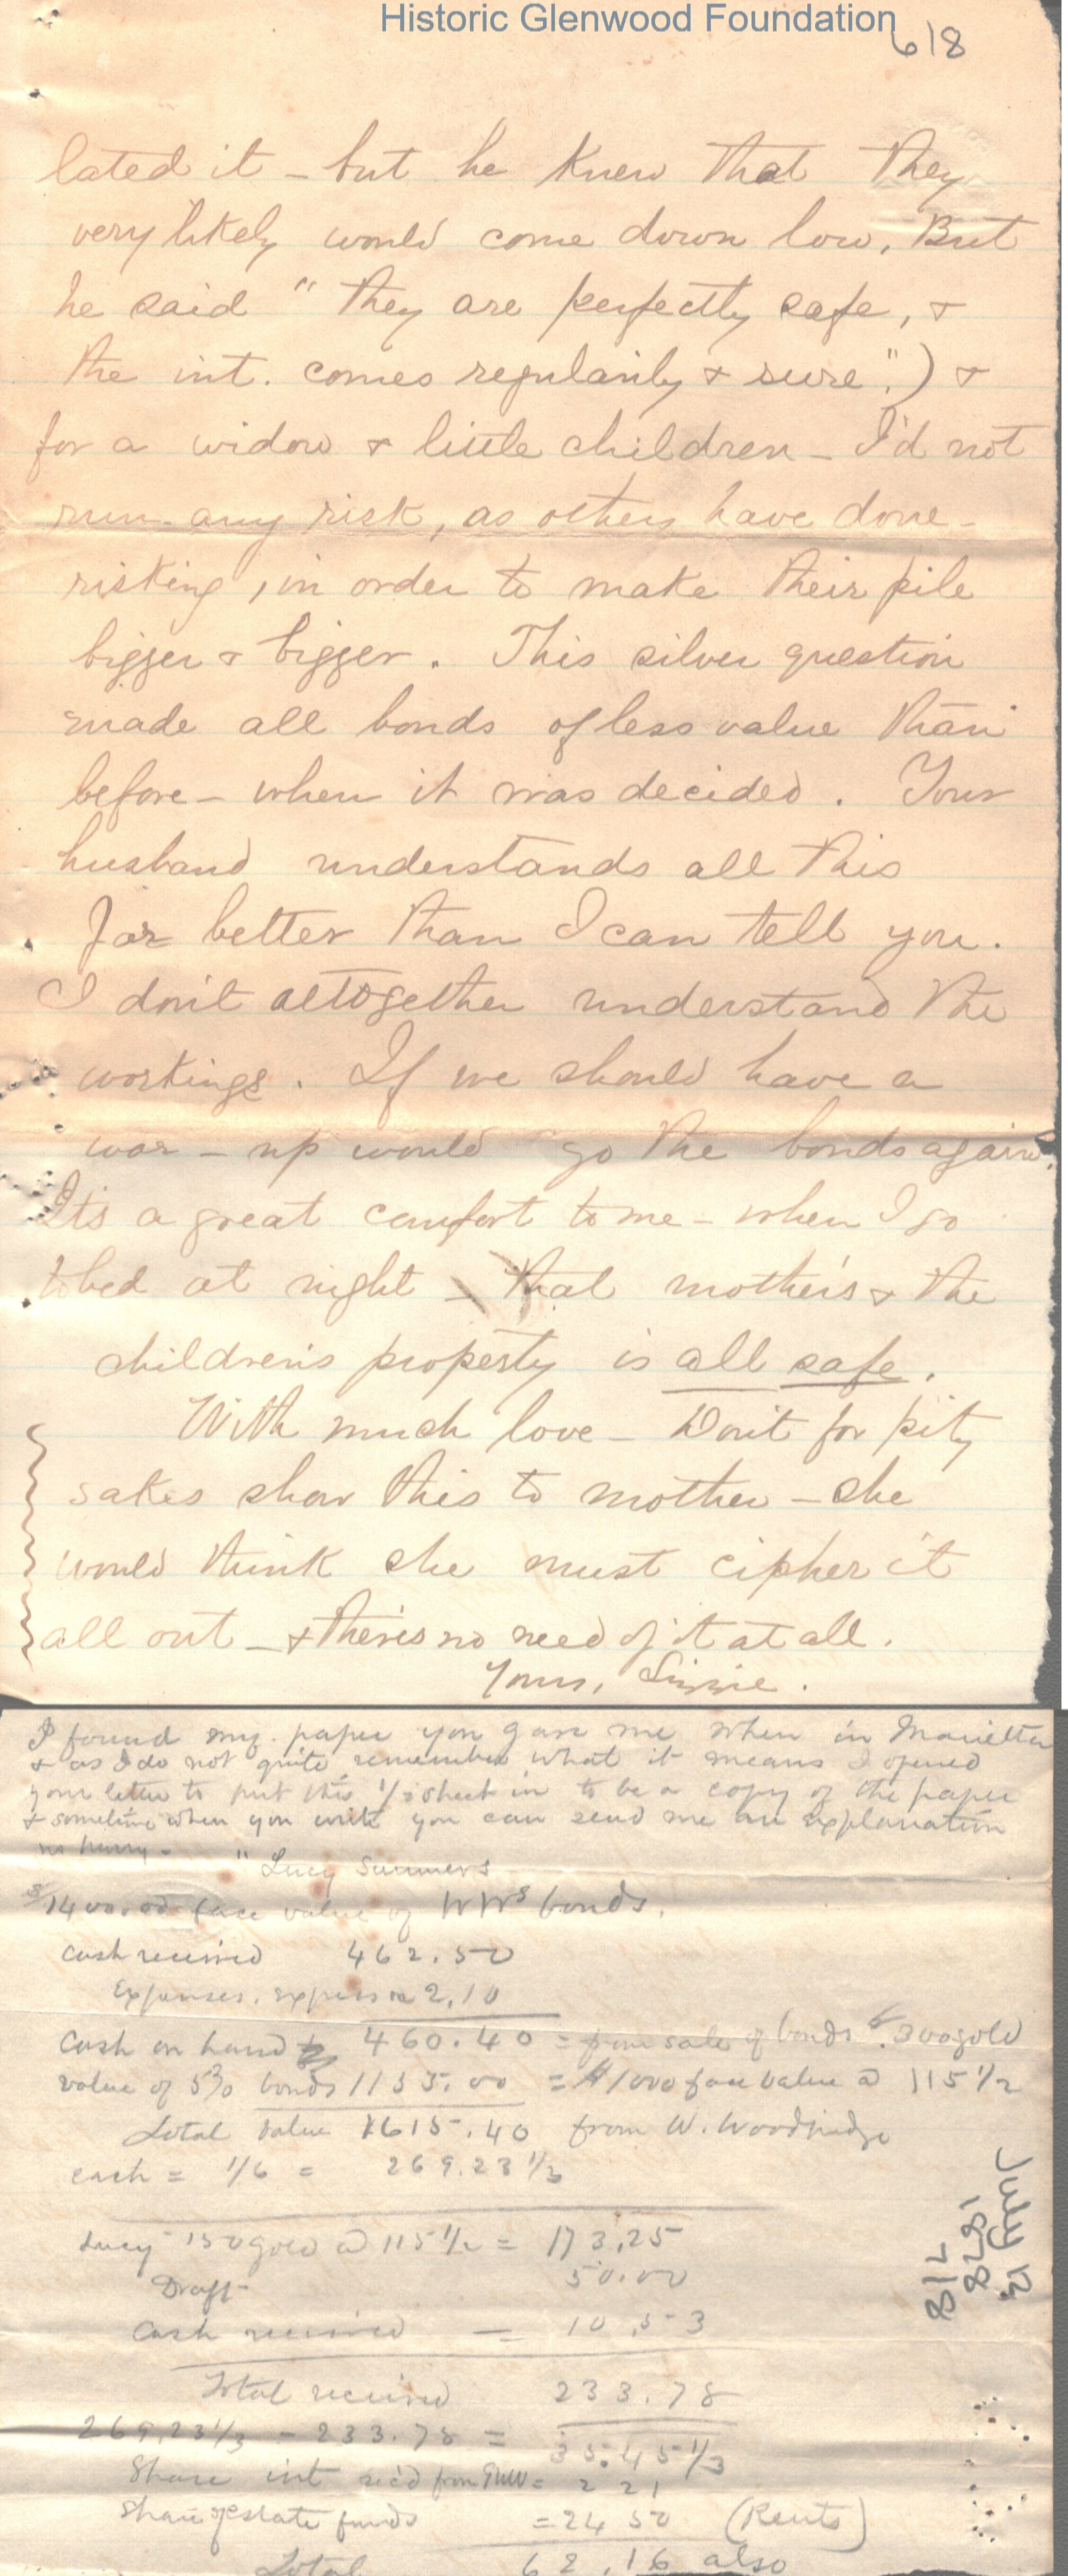 Historic Glenwood Foundation
618
lated it – but he knew that they
very likely would come down low. But
he said " they are perfectly safe, &
the int. comes regularily & sure".) &
for a widow & little children – I'd not
run any risk, as others have done –
risking, in order to make their pile
bigger & bigger. This silver question
made all bonds of less value than
before – when it was decided. Your
husband understands all this
far better than I can tell you.
I don't altogether understand the
workings. If we should have a
war – up would go the bonds again.
Its a great comfort to me – when I go
to bed at night – that mother's & the
children's property is all safe.
With much love – Don't for pity
sakes show this to mother – she
would think she must cipher it
all out – & there's no need of it at all.
Yours, Lizzie.
I found my paper you gave me when in Marietta
& as I do not quite remember what it means I opened
your letter to put this 1/2 sheet in to be a copy of the paper
& sometime when you write you can send me an explanation
no hurry –
" Lucy Summers
$1400.00 face value of WWs bonds.
Cash received 462.50
Expenses. express 2.10
Cash on hand 460.40 = from sale of bonds & 300 gold
value of 5% bonds 1155.00 = $1000 face value @ 115 1/2
Total value 1615.40 from W. Woodbridge
each = 1/6 = 269.23 1/3
Lucy 150 gold @ 115 1/2 = 173.25
Draft 50.00
Cash received = 10.53
Total received 233.78
269.23 1/3 – 233.78 = 35.45 1/3
Share int rec'd from = 2 21
Share of estate funds = 24 50 (Rents)
Total 62.16 also
July 13
1878
817